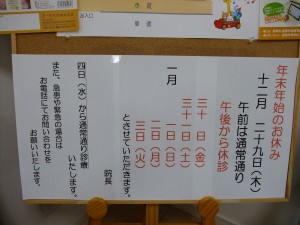 年末年始のお休み
十二月 二十九日(木)
午前は通常通り
午後から休診
三十日(金)
三十一日(土)
一月 一日(日)
二日(月)
三日(火)
とさせていただきます。
院長
四日(水)から通常通り診療
いたします。
また、急患や緊急の場合は
お電話にてお問い合わせを
お願いいたします。